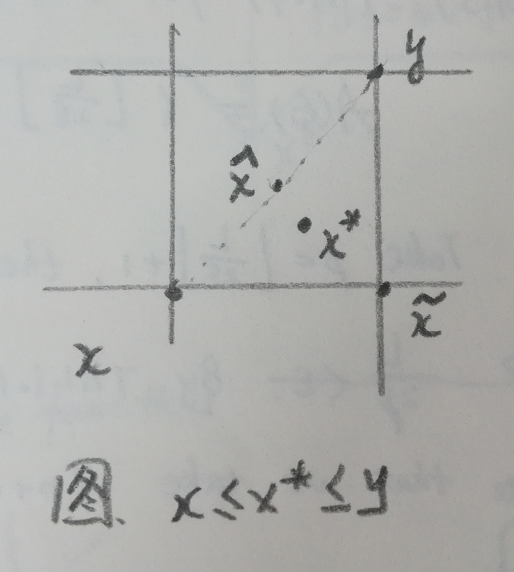 y
x̂
x*
x̃
x
图. x ≤ x* ≤ y